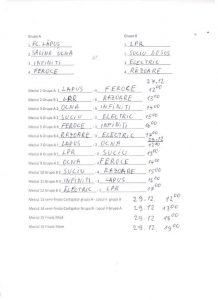 Grupa A Grupa B
1. FC. LĂPUȘ 1. LPR
2. SALINA OCNA 2. SUCIU DE SUS
3. INFINITI 3. ELECTRIC
4. FEROCE 4. RAZOARE
27.12
Meciul 1 Grupa A 1. LAPUS - 4. FEROCE 12:00
Meciul 2 Grupa B 1. LPR - 4. RAZOARE 13:00
Meciul 3 Grupa A 2. OCNA - 3. INFINITI 14:00
Meciul 4 Grupa B 2. SUCIU - 3. ELECTRIC 15:00
Meciul 5 Grupa A 4. FEROCE - 3. INFINITI 16:00
Meciul 6 Grupa B 4. RAZOARE - 3. ELECTRIC 17:00
Meciul 7 Grupa A 1. LAPUS - 2. OCNA 12:00
Meciul 8 Grupa B 1. LPR - 2. SUCIU 13:00
Meciul 9 Grupa A 2. OCNA - 4. FEROCE 14:00
Meciul 10 Grupa B 2. SUCIU - 4. RAZOARE 15:00
Meciul 11 Grupa A 3. INFINITI - 1. LAPUS 16:00
Meciul 12 Grupa B 3. ELECTRIC - 1. LPR 17:00
Meciul 13 semi-finala Castigator grupa A - Locul II grupa B 29.12 12:00
Meciul 14 semi-finala Castigator Grupa B - Locul II Grupa A 29.12 13:00
Meciul 15 Finala Mica 29.12
Meciul 15 Finala Mare 29.12